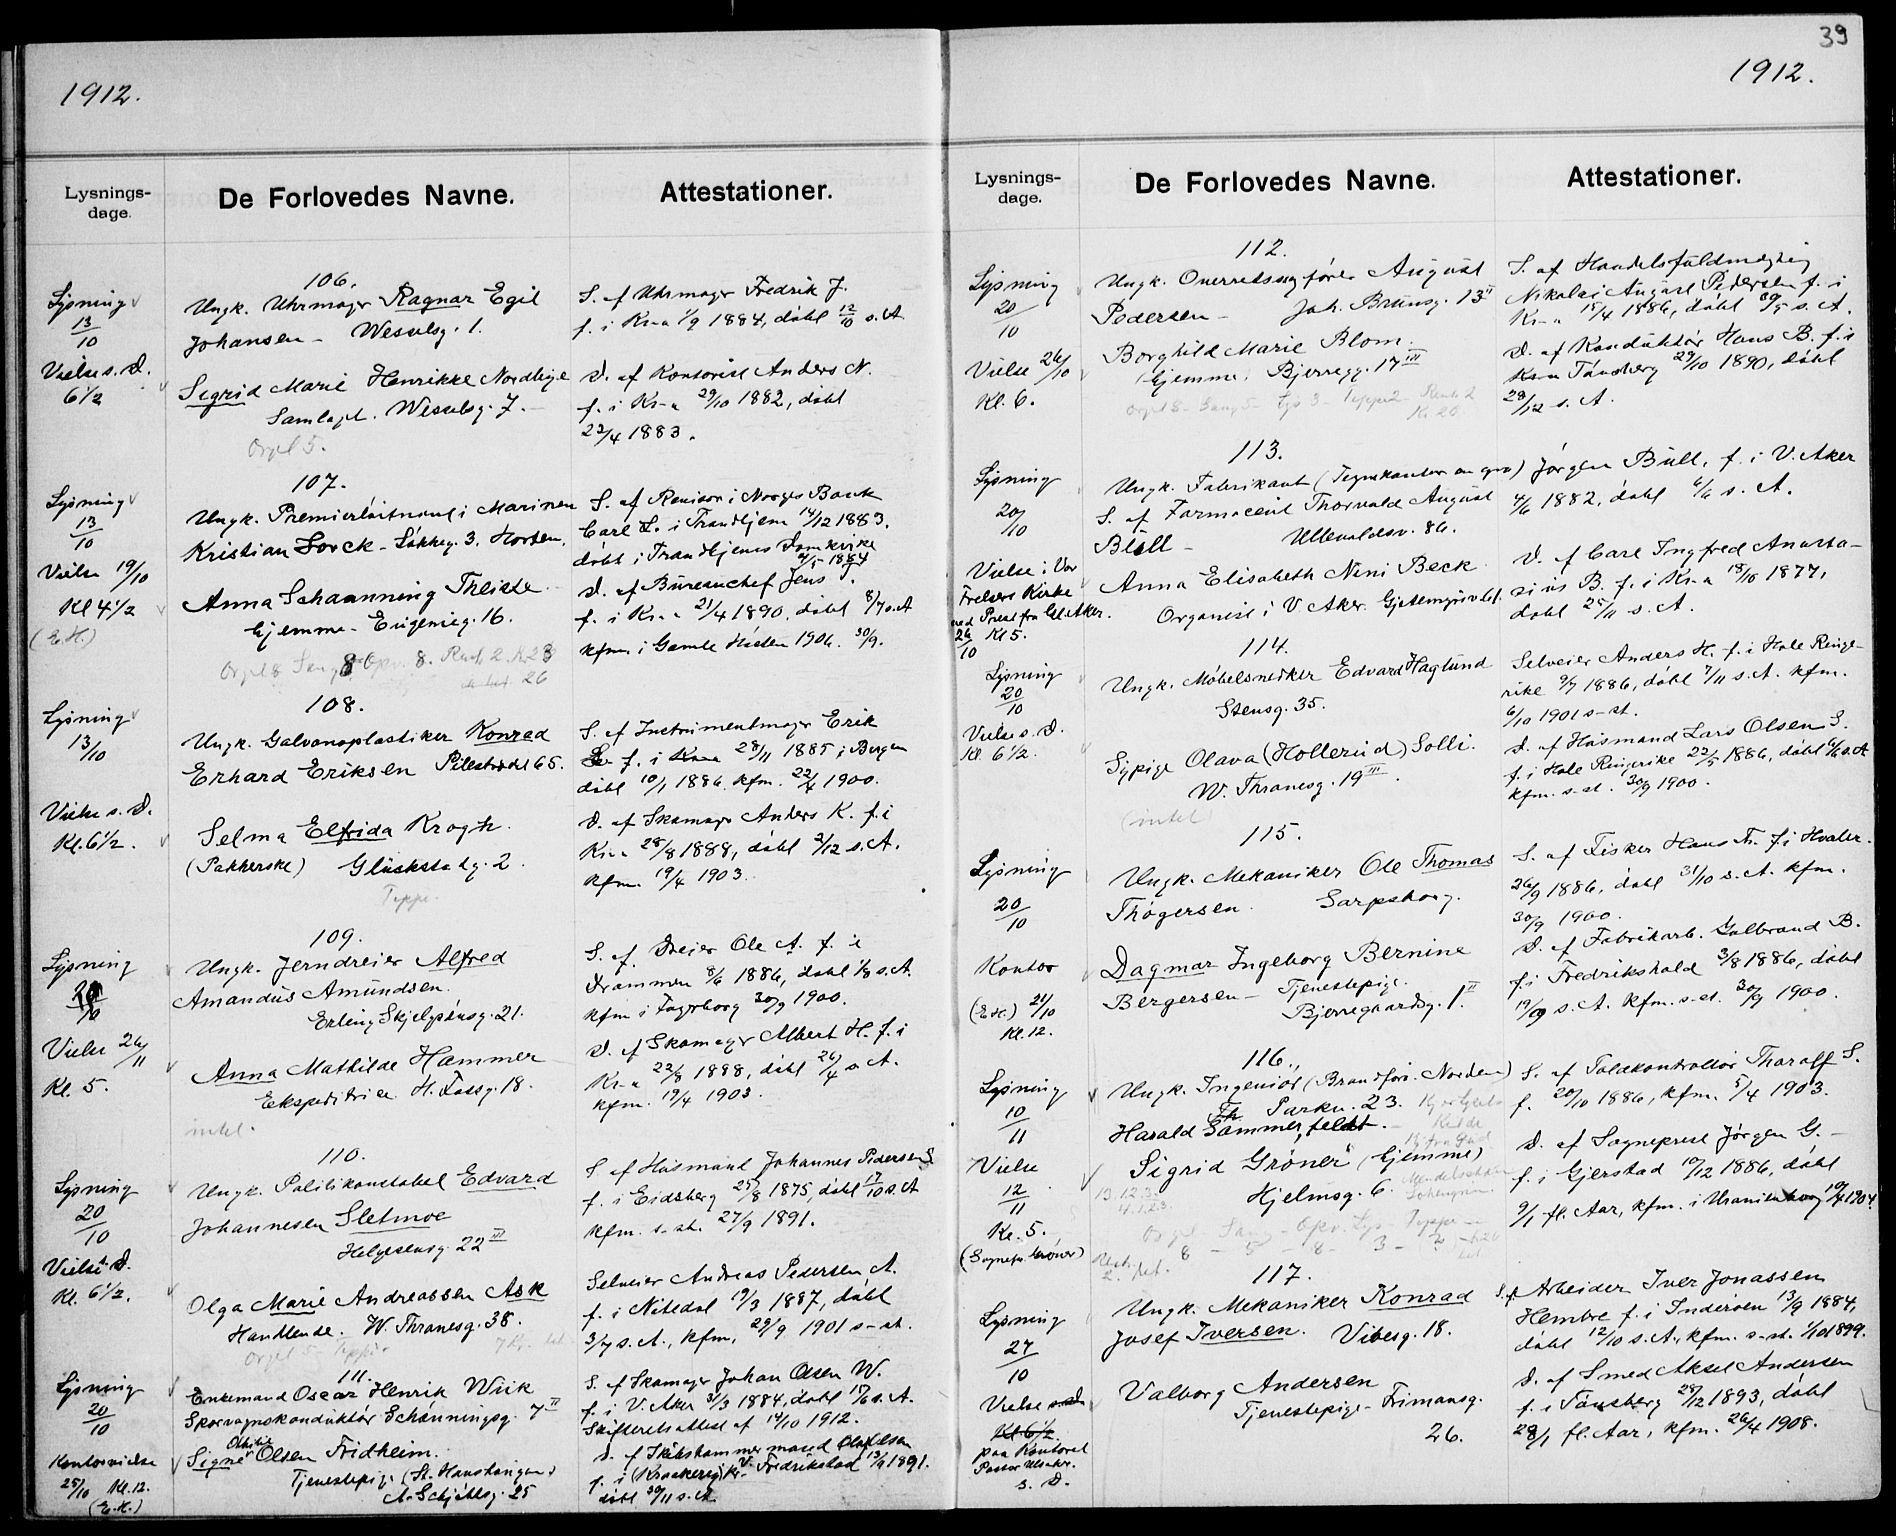 1912.
Lysnings-
dage.
De Forlovedes Navne.
Attestationer.
106.
Lysning
13/10
Vielse s. D.
6 1/2
Ungk. Uhrmager Ragnar Egil
Johansen - Wesselsg. 1.
Sigrid Marie Henrikke Nordbye
Samlagt. Wesselsg. 7.
Orgel 5.
S. af Uhrmager Fredrik J.
f. i Kr-a 1/9 1884, døbt 12/10 s. A.
D. af Kontorist Anders N.
f. i Kr-a 29/10 1882, døbt
22/4 1883.
107.
Lysning
13/10
Vielse 19/10
Kl 4 1/2
(E. H.)
Ungk. Premierløitnant i Marinen
Kristian Lorck - Løkkeg. 3. Horten.
Anna Schaanning Theiste
hjemme - Eugenieg. 16.
S. af Revisor i Norges Bank
Carl L. i Trondhjem 14/12 1883.
døbt i Trondhjems Domkirke
4/5 1884
D. af Bureauchef Jens J.
f. i Kr-a 21/4 1890. døbt 8/7 s. A
kfm. i Gamle Kirken 1904. 30/9.
108.
Lysning
13/10
Vielse s. D.
Kl. 6 1/2.
Ungk. Galvanoplastiker Konrad
Erhard Eriksen Pilestrædet 65.
Selma Elfrida Krogh.
(Pakkerske) Glückstadg. 2.
Teppe.
S. af Instrumentmager Erik
E. f. i 28/11 1885 i Bergen
døbt 10/1 1886. kfm. 22/4 1900.
D. af Skomager Anders K. f. i
Kr-a 28/8 1888, døbt 2/12 s. A.
kfm. 19/4 1903.
109.
Lysning
20/10
Vielse 26/11
Kl. 5.
Ungk. Jerndreier Alfred
Amandus Amundsen.
Erling Skjalgsønsg. 21.
Anna Mathilde Hammer
Ekspeditrice H. Fossg. 18.
intet.
S. af Dreier Ole A. f. i
Drammen 8/6 1886, døbt 1/8 s. A.
kfm i Fagerborg 30/9 1900.
D. af Skomager Albert H. f. i
Kr-a 22/8 1888, døbt 26/4 s. A.
kfm. 19/4 1903.
110.
Lysning
20/10
Vielse s. D.
Kl. 6 1/2.
Ungk. Politikonstabel Edvard
Johannesen Sletmoe
Helgesensg. 22 III
Olga Marie Andreassen Ask
Handlende. W. Thranesg. 38.
S. af Husmand Johannes Pedersen S.
f. i Eidsberg 25/8 1875, døbt 17/10 s. A
kfm. s-st. 27/9 1891.
Selveier Andreas Pedersen A.
f. i Nitedal 19/3 1887, døbt
3/7 s. A., kfm. 29/9 1901 s-st.
111.
Lysning
20/10
Kontorvielse
25/10 Kl. 12.
(E. H.)
Enkemand Oscar Henrik Wiik
Sporvognskonduktør Schønningsg. 7 II
Signe Olsen Fridheim.
Tjenestepige (St. Hanshaugen)
A. Schjøttsg. 25
S. af Skomager Johan Olsen W.
f. i V. Aker 31/3 1884, døbt 15/6 s. A.
Skifteretsattest af 14/10 1912.
D. af Skibstømmermand Olaf Olsen
f. i (Kraakerøy) v. Fredrikstad 13/9 1891.
døbt 30/11 s. A
39
1912.
Lysnings-
dage.
De Forlovedes Navne.
Attestationer.
112.
Lysning
20/10
Vielse 26/10
Kl. 6.
Ungk. Overretssagfører August
Pedersen - Joh. Brunsg. 13 II
Borghild Marie Blom.
hjemme. Bjerregg. 17 III
S. af Handelsfuldmægtig
Nikolai August Pedersen f. i
Kr-a 15/4 1886, døbt 30/5 s. A.
D. af Konduktør Hans B. f. i
Tønsberg 29/10 1890, døbt
28/12 s. A.
113.
Lysning
20/10
Vielse i Vor
Frelsers Kirke
ved Prest fra Gl. Aker.
26/10 Kl 5.
Ungk. Fabrikant (Tegnekontor en gros)
S. af Farmaceut Thorvald August
Büll - Ullevoldsv. 86.
Anna Elisabeth Nini Beck
Organist i V. Aker.
Jørgen Bull, f. i V. Aker
4/6 1882, døbt 6/6 s. A.
D. af Carl Ingfred Anasta-
sius B. f. i Kr-a 18/10 1877,
døbt 25/11 s. A.
114.
Lysning
20/10
Vielse s. D.
Kl. 6 1/2.
Ungk. Møbelsnedker Edvard Haglund
Stensg. 35.
Sypige Olava (Hollerud) Solli.
W. Thranesg. 19 III.
(intet)
Selveier Anders H. f. i Hole Ringe-
rike 9/7 1886, døbt 7/11 s. A. kfm.
6/10 1901 s-st.
D. af Husmand Lars Olsen S.
f. i Hole Ringerike 22/5 1886, døbt 6/6 s. A
kfm. s-st. 30/9 1900.
115.
Lysning
20/10
Kontor
(E. H.) 21/10
Kl. 12.
Ungk. Mekaniker Ole Thomas
Thøgersen. Sarpsborg.
Dagmar Ingeborg Bernine
Bergersen - Tjenestepige.
Bjerregaardsg. 1 II
S. af Fisker Hans Th. f. i Hvaler.
26/9 1886, døbt 31/10 s. A. kfm.
30/9 1900.
D. af Fabrikarb. Gulbrand B.
f. i Fredrikshald 3/8 1886, døbt
19/9 s. A. kfm. s-st. 30/9 1900.
116.
Lysning
10/11
Vielse
12/11
Kl. 5.
(Sognepr. Grøner)
Ungk. Ingeniør (Brandfors. Norden)
Th Parkv. 23.
Harald Sommerfeldt.
Sigrid Grøner (hjemme)
Hjelmsg. 6.
S. af Toldkontrollør Tharalf S.
f. 20/10 1886, kfm. 5/4 1903.
D. af Sogneprest Jørgen G. -
f. i Gjerstad 19/12 1886, døbt
9/1 fl. Aar, kfm. i Uranienborg 10/4 1904.
117.
Lysning
27/10
Vielse
Kl 6 1/2.
paa Kontoret
Pastor
s. D.
Ungk. Mekaniker Konrad
Josef Iversen. Vibesg. 18.
Valborg Andersen
Tjenestepige - Frimansg.
26.
S. af Arbeider Iver Jonassen
Hembre f. i Inderøen 13/9 1884,
døbt 12/10 s. A., kfm. s-st. 1/10 1899.
D. af Smed Aksel Andersen
f. i Tønsberg 28/12 1893, døbt
28/1 fl. Aar, kfm. 26/4 1908.